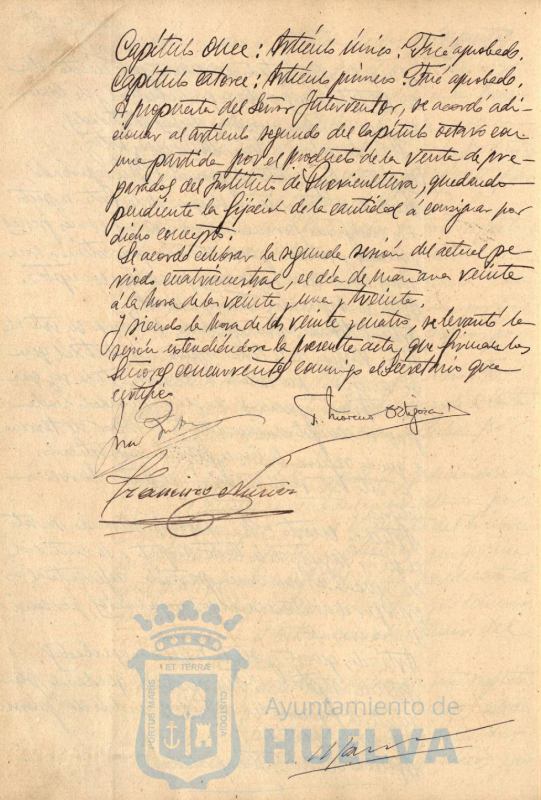 Capítulo once: Artículo único. Fué aprobado.
Capítulo catorce: Artículo primero. Fué aprobado.
A propuesta del Señor Interventor, se acordó adi-
cionar al artículo segundo del capítulo octavo con
una partida por el producto de la venta de pre-
parados del Instituto de Puericultura, quedando
pendiente la fijación de la cantidad á consignar por
dicho concepto.
Se acordó celebrar la segunda sesión del actual pe-
riodo cuatrimestral, el día de mañana veinte
á la hora de las veinte y una y treinta.
Y siendo la hora de las veinte y cuatro, se levantó la
sesión extendiéndose la presente acta, que firman los
Señores concurrentes conmigo el Secretario que
certifico
F. Moreno Ortega
Francisco Núñez
PORTUS MARIS
ET TERRÆ
CUSTODIA
Ayuntamiento de
HUELVA